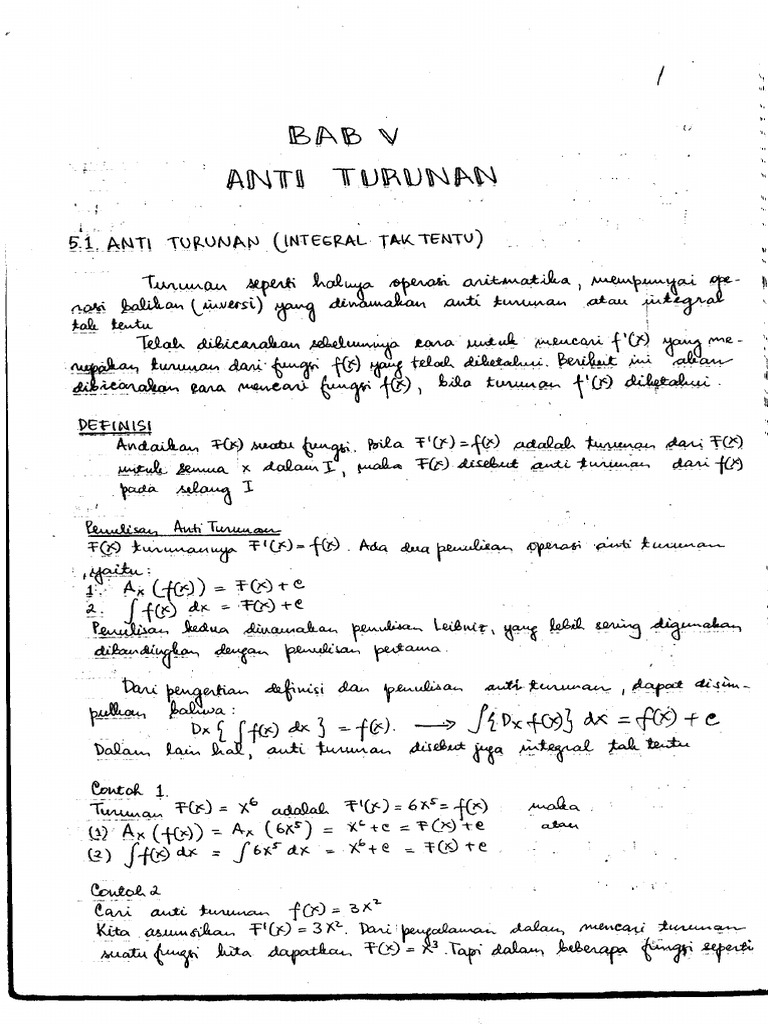 1
BAB V
ANTI TURUNAN
5.1. ANTI TURUNAN (INTEGRAL TAK TENTU)
Turunan seperti halnya operasi aritmatika, mempunyai ope-
rasi balikan (inversi) yang dinamakan anti turunan atau integral
tak tentu
Telah dibicarakan sebelumnya cara untuk mencari f'(x) yang me-
rupakan turunan dari fungsi f(x) yang telah diketahui. Berikut ini akan
dibicarakan cara mencari fungsi f(x), bila turunan f'(x) diketahui.
DEFINISI
Andaikan F(x) suatu fungsi. Bila F'(x) = f(x) adalah turunan dari F(x)
untuk semua x dalam I, maka F(x) disebut anti turunan dari f(x)
pada selang I
Penulisan Anti Turunan
F(x) turunannya F'(x) = f(x). Ada dua penulisan operasi anti turunan
, yaitu:
1. Ax (f(x)) = F(x) + c
2. ∫ f(x) dx = F(x) + c
Penulisan kedua dinamakan penulisan Leibniz, yang lebih sering digunakan
dibandingkan dengan penulisan pertama.
Dari pengertian definisi dan penulisan anti turunan, dapat disim-
pulkan bahwa:
Dx { ∫ f(x) dx } = f(x). → ∫ {Dx f(x)} dx = f(x) + c
Dalam lain hal, anti turunan disebut juga integral tak tentu
Contoh 1.
Turunan F(x) = x⁶ adalah F'(x) = 6x⁵ = f(x) maka
(1) Ax (f(x)) = Ax (6x⁵) = x⁶ + c = F(x) + c atau
(2) ∫ f(x) dx = ∫ 6x⁵ dx = x⁶ + c = F(x) + c
Contoh 2
Cari anti turunan f(x) = 3x²
Kita asumsikan F'(x) = 3x². Dari pengalaman dalam mencari turunan
suatu fungsi kita dapatkan F(x) = x³. Tapi dalam beberapa fungsi seperti